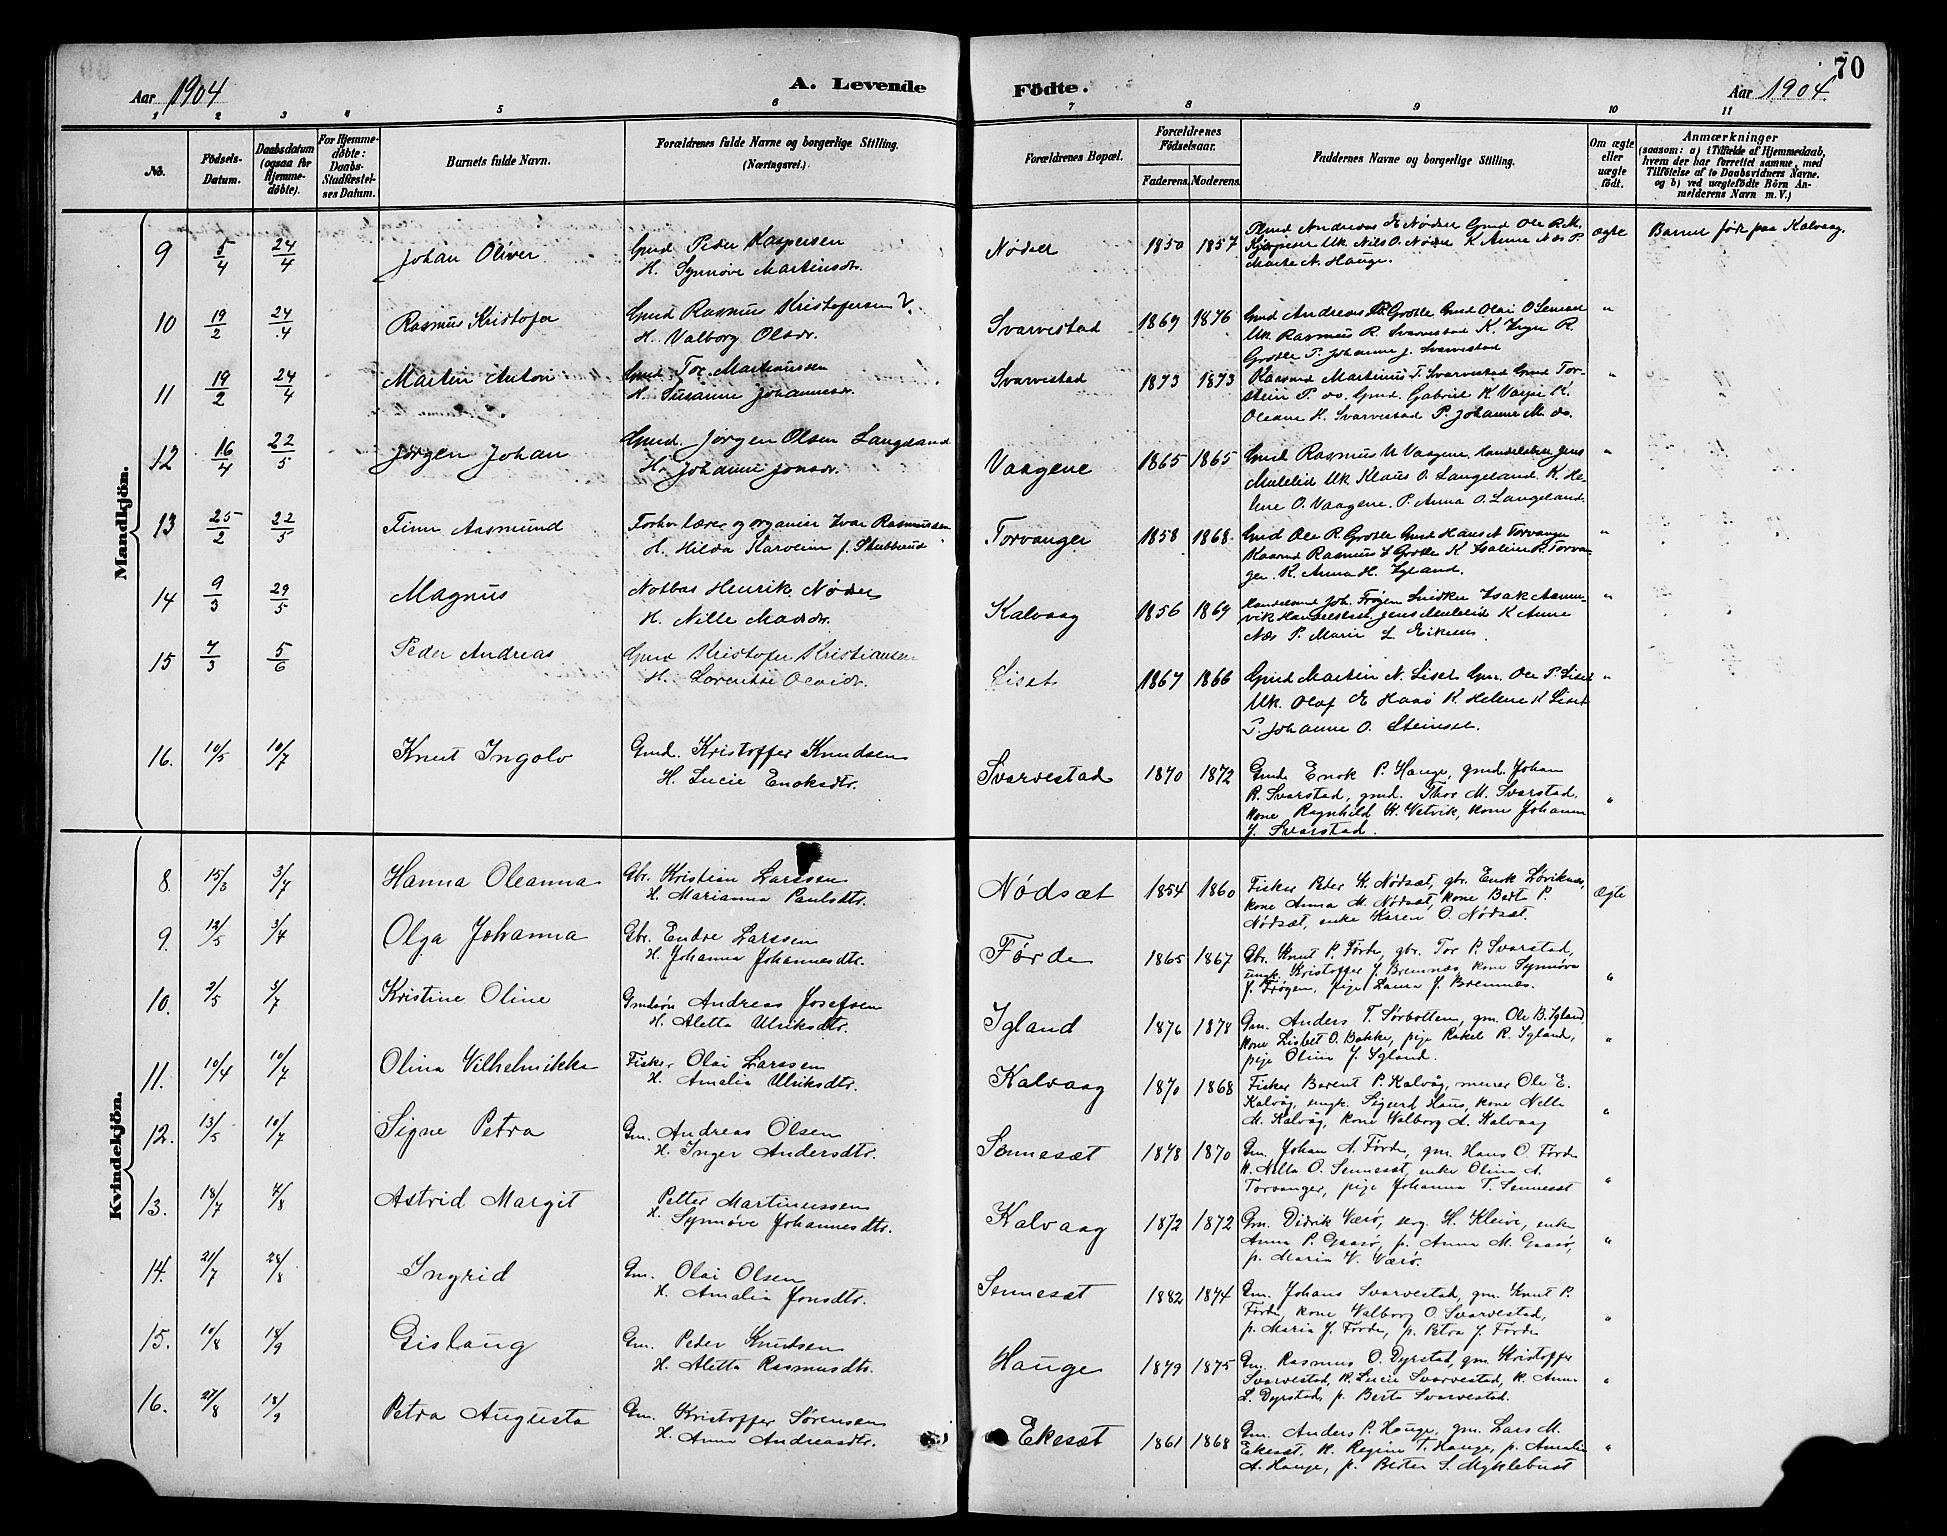 70
Aar 1904
A. Levende Födte.
Aar 1904
1 2 3 4 5 6 7 8 9 10 11
No.
Födsels-Datum.
Daabsdatum (ogsaa for Hjemme-döbte).
For Hjemme-döbte: Daabs-Stadfæstel-ses Datum.
Barnets fulde Navn.
Forældrenes fulde Navne og borgerlige Stilling. (Næringsvei.)
Forældrenes Bopæl.
Forældrenes Födselsaar.
Faderens. Moderens.
Faddernes Navne og borgerlige Stilling.
Om ægte eller uægte födt.
Anmærkninger
(saasom: a) i Tilfælde af Hjemmedaab, hvem der har forrettet samme, med Tilföielse af to Daabsvidners Navne. og b) ved uægtefödte Börn Anmelderens Navn m. V.)
Mandkjön.
9 5/4 24/4 Johan Oliver Gmd Peder Kaspersen Nødset 1850 1857 Gmd Andreas E Nødset Gmd Ole P. M. ægte Barnet født paa Kalvaag.
H. Synnøve Martinsdr. Uk Nils O. Nødset K Anne Næs P.
Marte N. Hauge.
10 19/2 24/4 Rasmus Kristofer Gmd Rasmus Kristofersen Svarvestad 1869 1876 Gmd Andreas R Grotle Gmd Olai O Senneset "
H. Valborg Olsdr. Uk Rasmus R. Svarvestad K. Inger R.
Grotle P. Johanne J. Svarvestad
11 19/2 24/4 Martin Anton Gmd Tor Martinussen Svarvestad 1873 1873 Kaarmd Martinus T Svarvestad Gmd Tor- "
H. Susanne Johannesdr. stein P. do. Gmd. Gabriel K Varpe K.
Oleane H. Svarvestad P. Johanne M. do.
12 16/4 22/5 Jørgen Johan Gmd. Jørgen Olsen Langeland Vaagene 1865 1865 Gmd Rasmus U Vaagene Handelsbetj Jens "
H. Johanne Jonsdr. Muleleid Uk Klaus O. Langeland. K. He-
lene O. Vaagene. P. Anna O. Langeland.
13 25/2 22/5 Finn Aasmund Forhv lærer og organist Ivar Rasmussen Torvanger 1858 1868 Gmd Ole R. Grotle Gmd Hans A Torvanger "
H. Hilda Karoline f. Stubberud Kaarmd Rasmus L Grotle K. Isaline R. Torvan-
ger. K. Anna H. Igland.
14 9/3 29/5 Magnus Notbas Henrik Nødset Kalvaag 1856 1869 Handelsmd Joh. Frøyen Snidker Isak Aarne- "
H. Nille Madsdr. vik Handelsbetj Jens Muleleid K Anne
Næs P. Marie L. Eikenes.
15 7/3 5/6 Peder Andreas Gmd Kristofer Kristiansen Liset 1867 1866 Gmd Martin N. Liset Gm. Ole P. Liset "
H. Lorentse Olaidr. Uk. Olaf E Haasø K. Helene K Liset
P. Johanne O. Steinset.
16. 10/5 10/7 Knut Ingolv Gmd. Kristoffer Knudsen Svarvestad 1870 1872 Gmd. Enok P. Hauge, gmd. Johan
H. Lucie Enoksdtr. R. Svarstad, gmd. Thor M. Svarstad, "
kone Ragnhild K. Vetvik, kone Johanne
J. Svarstad.
Kvindekjön.
8. 15/3 3/7 Hanna Oleanna Gbr. Kristian Larssen Nödsæt 1854 1860 Fisker Peter K. Nödsæt, gbr. Enok Löviknes, Ægte
H. Marianna Paulsdtr. kone Anna M. Nödsæt, kone Berte P.
Nödsæt, enke Karen O. Nödsæt.
9. 12/5 3/7 Olga Johanna Gbr. Endre Larssen Förde 1865 1867 Gbr. Knut P. Förde, gbr. Tor P. Svarstad,
H. Johanna Johannesdtr. ungk. Kristoffer J. Bremnes, kone Synnöve "
J. Frögen, pige Laura J. Bremnes.
10. 2/5 3/7 Kristine Oline Gmdsön Andreas Josefsen Igland 1876 1878 Gm. Anders T. Sörbotten, gm. Ole B. Igland,
H. Aletta Ulriksdtr. kone Lisbet O. Bakke, pige Rakel R. Igland, "
pige Olina J. Igland.
11. 10/4 10/7 Olina Vilhelmikke Fisker Olai Larssen Kalvaag 1870 1868 Fisker Berent P. Kalvåg, murer Ole E.
H. Amalia Ulriksdtr. Kalvåg, ungk. Sigurd Haus, kone Nella "
M. Kalvåg, kone Valborg A. Kalvaag
12. 13/5 10/7 Signe Petra Gm. Andreas Olsen Sennesæt 1878 1870 Gm. Johan A. Förde, gm. Hans O. Förde
H. Inger Andersdtr. K. Nella O. Sennesæt, enke Olina A. "
Torvanger, pige Johanna T. Sennesæt
13. 18/7 7/8 Astrid Margit Petter Martinussen Kalvaag 1872 1872 Gm. Didrik Værö, serg. H. Kleive, enke
H. Synnöve Johannesdtr. Anna P. Gaasö, p. Anna M. Gaasö, "
p. Maria V. Værö.
14. 21/7 28/8 Ingrid Gm. Olai Olsen Sennesæt 1882 1874 Gm. Johans Svarvestad, gm. Knut P.
H. Amalia Jonsdtr. Förde, kone Valborg O. Svarvestad, "
p. Maria J. Förde, p. Petra J. Förde
15. 10/8 18/9 Gislaug Gm. Peder Knudsen Hauge 1879 1875 Gm. Rasmus O. Dyrstad, gm. Kristoffer
H. Aletta Rasmusdtr. Svarvestad, k. Lucie Svarvestad, k. Anne "
L. Dyrstad, p. Berta Svarvestad.
16. 27/8 18/9 Petra Augusta Gm. Kristoffer Sörensen Ekesæt 1861 1868 Gm. Anders P. Hauge, gm. Lars M.
H. Anna Andreasdtr. Ekesæt, k. Regine T. Hauge, p. Amalia "
A. Hauge, p. Berter S. Myklebust